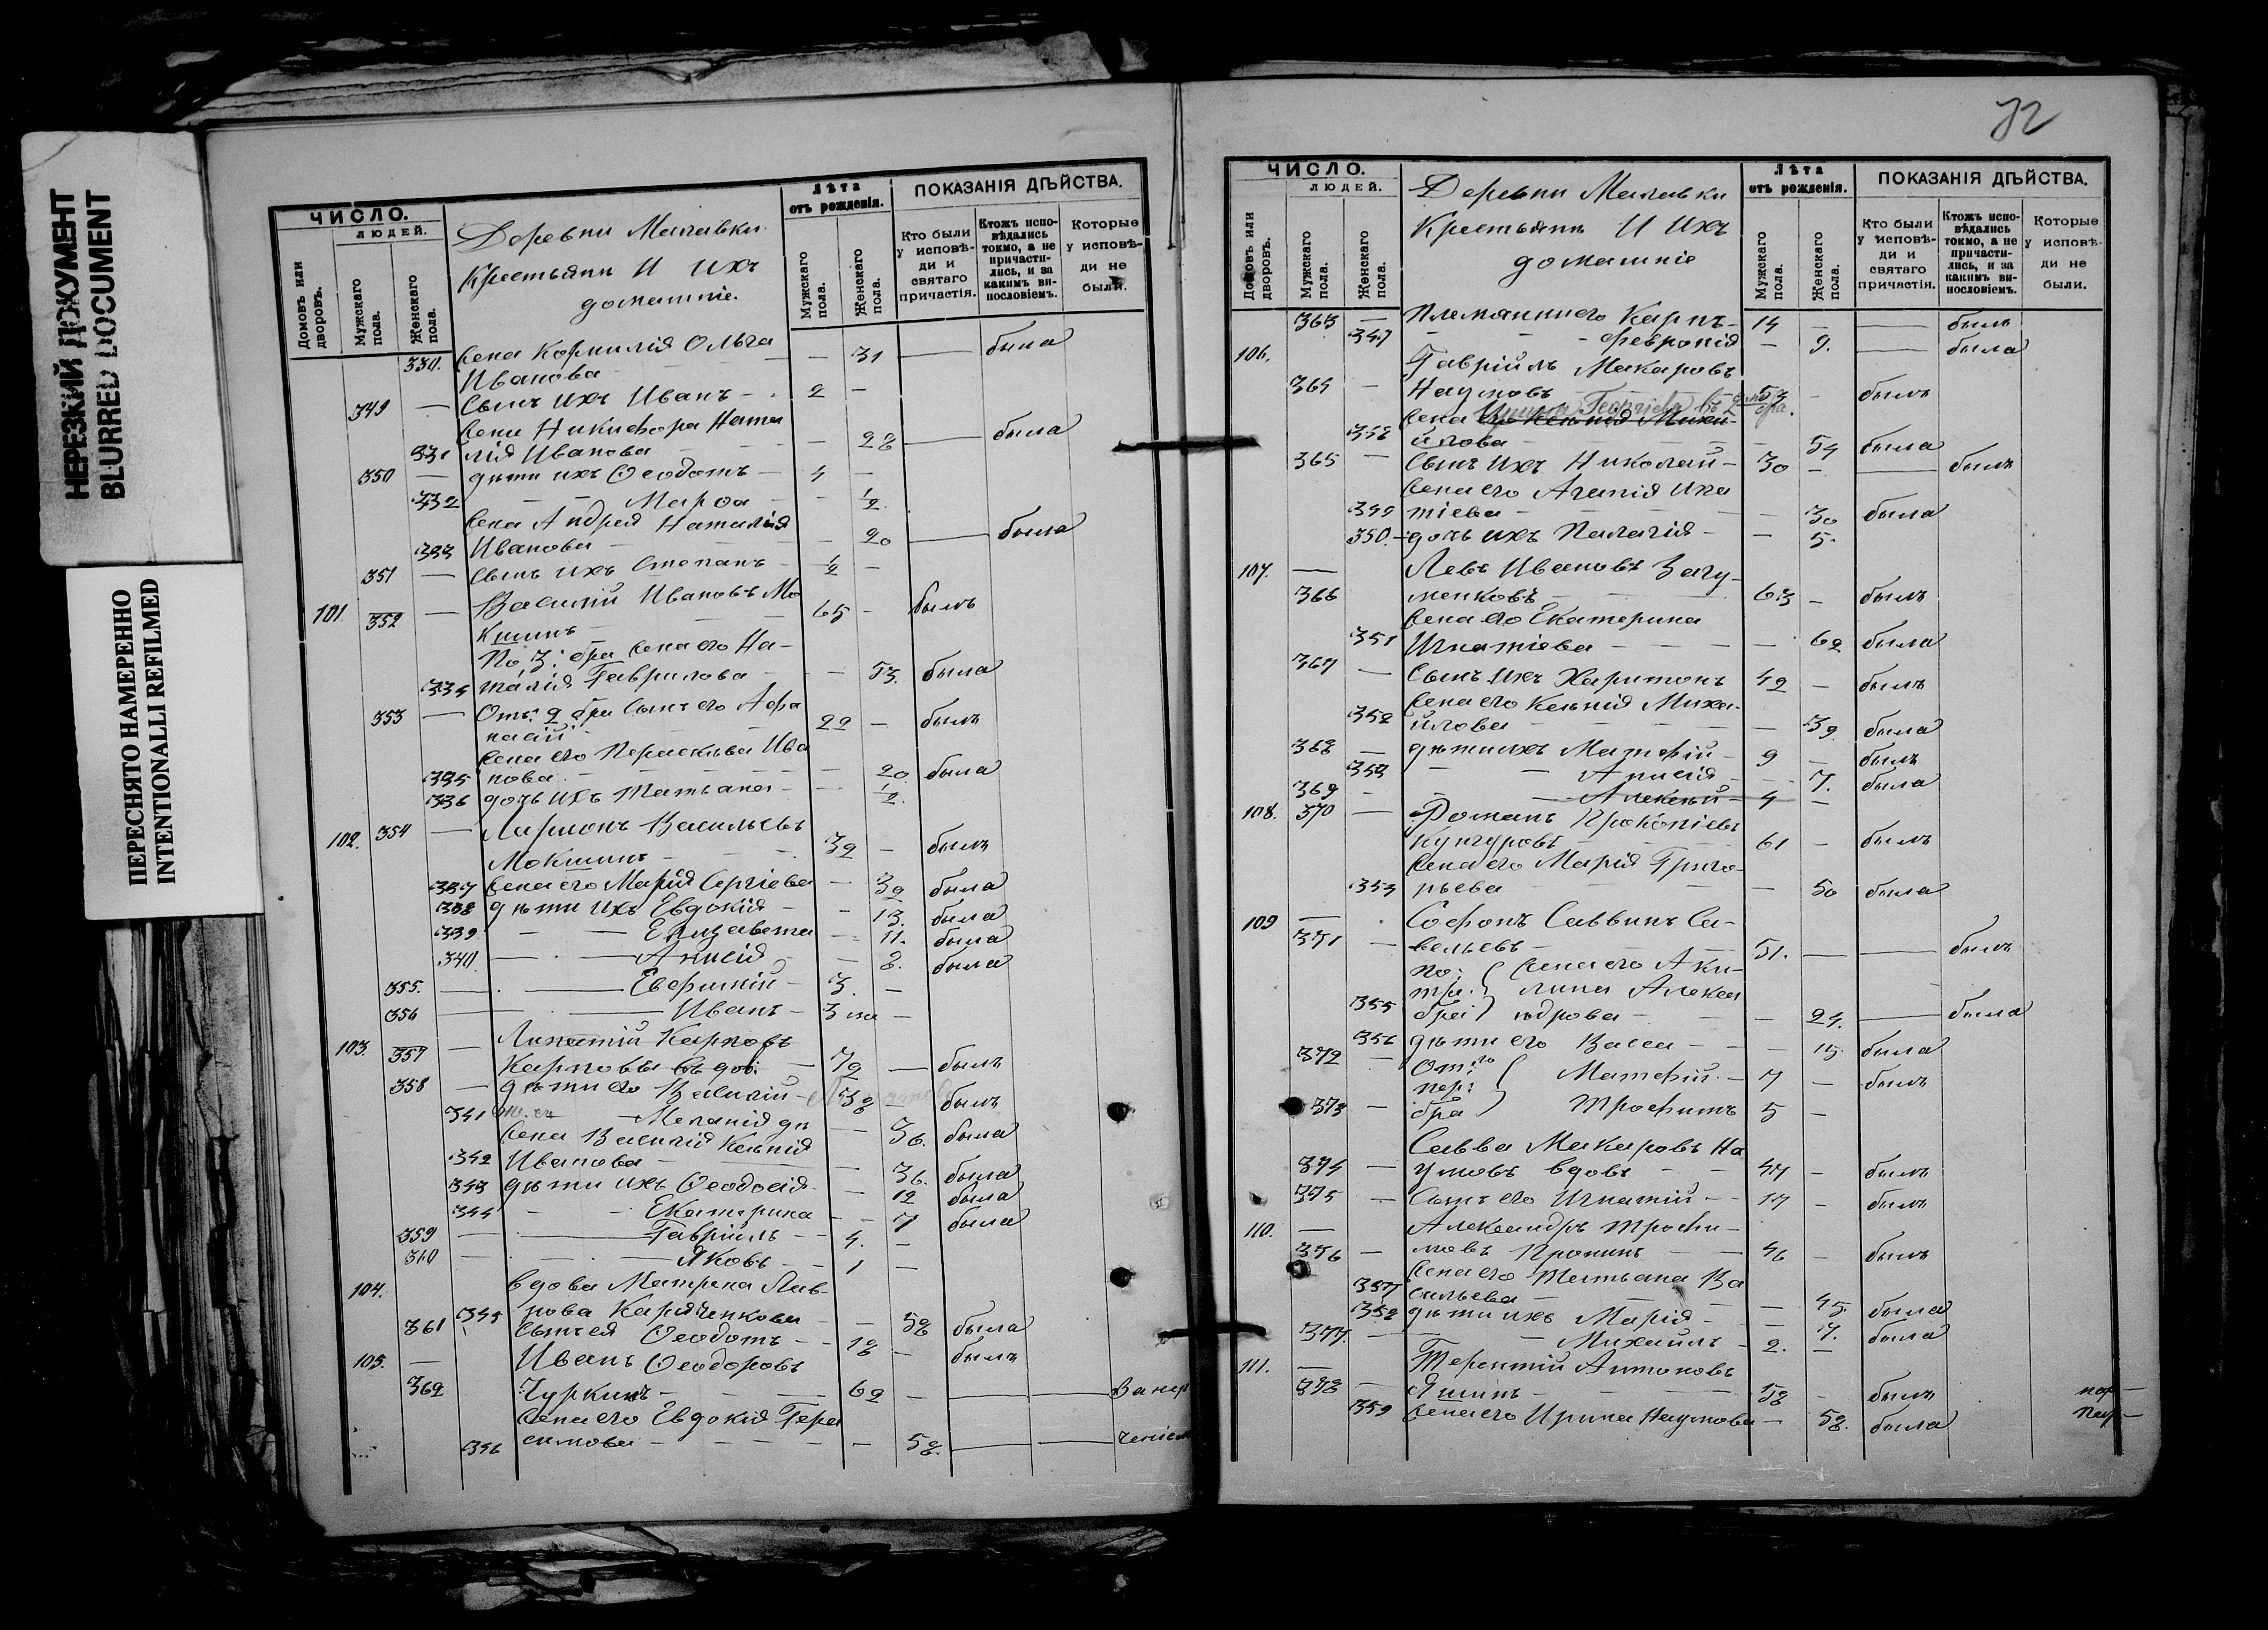 НЕРЕЗКИЙ ДОКУМЕНТ
BLURRED DOCUMENT
ПЕРЕСНЯТО НАМЕРЕННО
INTENTIONALLI REFILMED
ЧИСЛО.
ЛЮДЕЙ.
Домовъ или дворовъ.
Мужскаго пола.
Женскаго пола.
Деревни
Крестьяне И ихъ
домашніе.
Лѣта
отъ рожденія.
Мужскаго пола.
Женскаго пола.
ПОКАЗАНІЯ ДѢЙСТВА.
Кто были у исповѣди и святаго причастія.
Ктожъ исповѣдались токмо, а не причастились, и за какимъ винословіемъ.
Которые у исповѣди не были.
330. Жена Корнилія Ольга
Иванова — 31 — была
349 — Сынъ ихъ Иванъ — 2 —
Жена Никифора Ната
331 лія Иванова — 28 — была
350 — дѣти ихъ Ѳеодотъ — 4 —
332 — Марѳа — 1/2
Жена Андрея Наталія
333 Иванова — 20 — была
351 — Сынъ ихъ Степанъ — 1/2 —
101. 352 — Василій Ивановъ Мо 65 — былъ
кшинъ
По 3: бра Жена его На-
334 талія Гаврилова — 53. была
353 — Отъ: 2 бра Сынъ его Афа 22 — былъ
насій
Жена его Параскева Ива
335 нова — 20 была
336 дочь ихъ Татьяна — 1/2.
102. 354 — Ларіонъ Васильевъ
Мокшинъ — 39 — былъ
337 Жена его Марія Сергіева — 39 была
338 дѣти ихъ Евдокія — 13. была
339 — Елизавета — 11. была
340. — Анисія — 8. была
355. — Евфимій — 3. —
356 — Иванъ — 3 —
103. 357 — Карповъ
72 — былъ
358 — дѣти его Василій — 38 — былъ
341 Меланія 36. была
Жена Василія Ксенія
342 Иванова — 36. была
343 дѣти ихъ Ѳеодосія — 12 была
344 — Екатерина — 7 была
359 — Гавріилъ — 4. —
360 — Яковъ — 1 —
104. вдова Матрена Лав-
345 рова — 58 была
361 Сынъ ея Ѳеодотъ — 18 — былъ
105. — Иванъ Ѳеодоровъ
362 Чуркинъ — 62 —
Жена его Евдокія Гера
346 симова — 58. —
72
ЧИСЛО.
ЛЮДЕЙ.
Домовъ или дворовъ.
Мужскаго пола.
Женскаго пола.
Деревни
Крестьяне И ихъ
домашніе
Лѣта
отъ рожденія.
Мужскаго пола.
Женскаго пола.
ПОКАЗАНІЯ ДѢЙСТВА.
Кто были у исповѣди и святаго причастія.
Ктожъ исповѣдались токмо, а не причастились, и за какимъ винословіемъ.
Которые у исповѣди не были.
363 — Карпъ — 14 — былъ
347 — Февронія — 9. — была
106. Гавріилъ Макаровъ
364 — Наумовъ 53 — былъ
Жена Ирина Георгіева Ксенія Михаи-
348 йлова — 54 была
365 — Сынъ ихъ Николай — 30 — былъ
Жена его Агапія Игна
349 тіева — 30 была
350. — дочь ихъ Палагія — 5.
107. — Левъ Ивановъ Загу-
366 менковъ — 63 — былъ
Жена его Екатерина
351 Игнатіева — 62 была
367 — Сынъ ихъ Харитонъ 42 — былъ
Жена его Ксенія Михаи-
352 йлова — 39 была
368 — дѣти ихъ Матфій — 9 — былъ
353 — Анисія — 7. была
369 — Алексій — 4 —
108. 370 — Романъ Прокопіевъ
Кунгуровъ — 61 — былъ
Жена его Марія Григо-
353 рьева — 50 была
109 — Софонъ Саввинъ Са-
371 — вельевъ — 51. — былъ
по: Жена его Аки-
тре: лина Алекса
355 бра ндрова — 24. — была
356 дѣти его Васса — 15. была
372 — От: Матфій — 7 — былъ
пер:
373 — бра Трофимъ 5 —
Савва Макаровъ На
374 — умовъ вдовъ — 47 — былъ
375 — Сынъ его Игнатій — 17 — былъ
110. — Александръ Трофи-
376 — мовъ Пронинъ — 46 — былъ
Жена его Татьяна Ва
357 сильева — 45. была
358 дѣти ихъ Марія — 7. была
377. — Михаилъ — 2. —
111. — Терентій Антоновъ
378 — Яшинъ — 58 — былъ
359 Жена его Ирина Наумова — 58. была